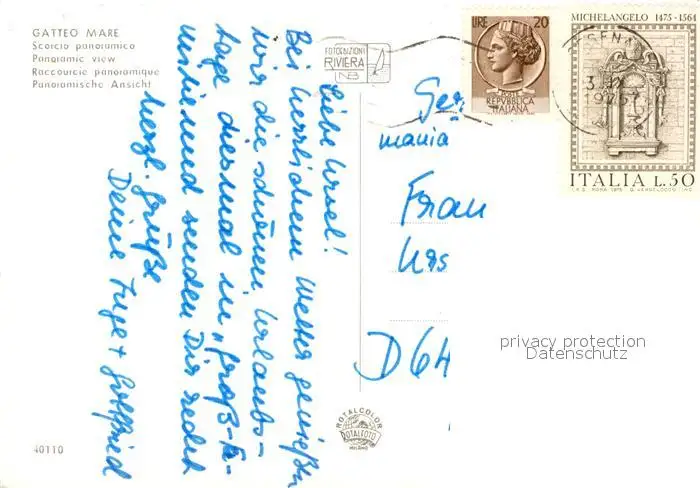 GATTEO MARE
Scorcio panoramico
Panoramic view
Raccourcie panoramique
Panoramische Ansicht
FOTOEDIZIONI
RIVIERA
LIRE 20
POSTE
REPVBBLICA
ITALIANA
MICHELANGELO 1475-1564
ITALIA L.50
Liebe Ursel!
Bei herrlichem Wetter genießen
wir die schönen Urlaubs-
tage diesmal in "Groß-Fa-
milie" und senden Dir recht
herzl. Grüße
Deine Inge + Gottfried
Ger
mania
Frau
Urs
D 64
privacy protection
Datenschutz
ROTALCOLOR
ROTALFOTO
MILANO
40110